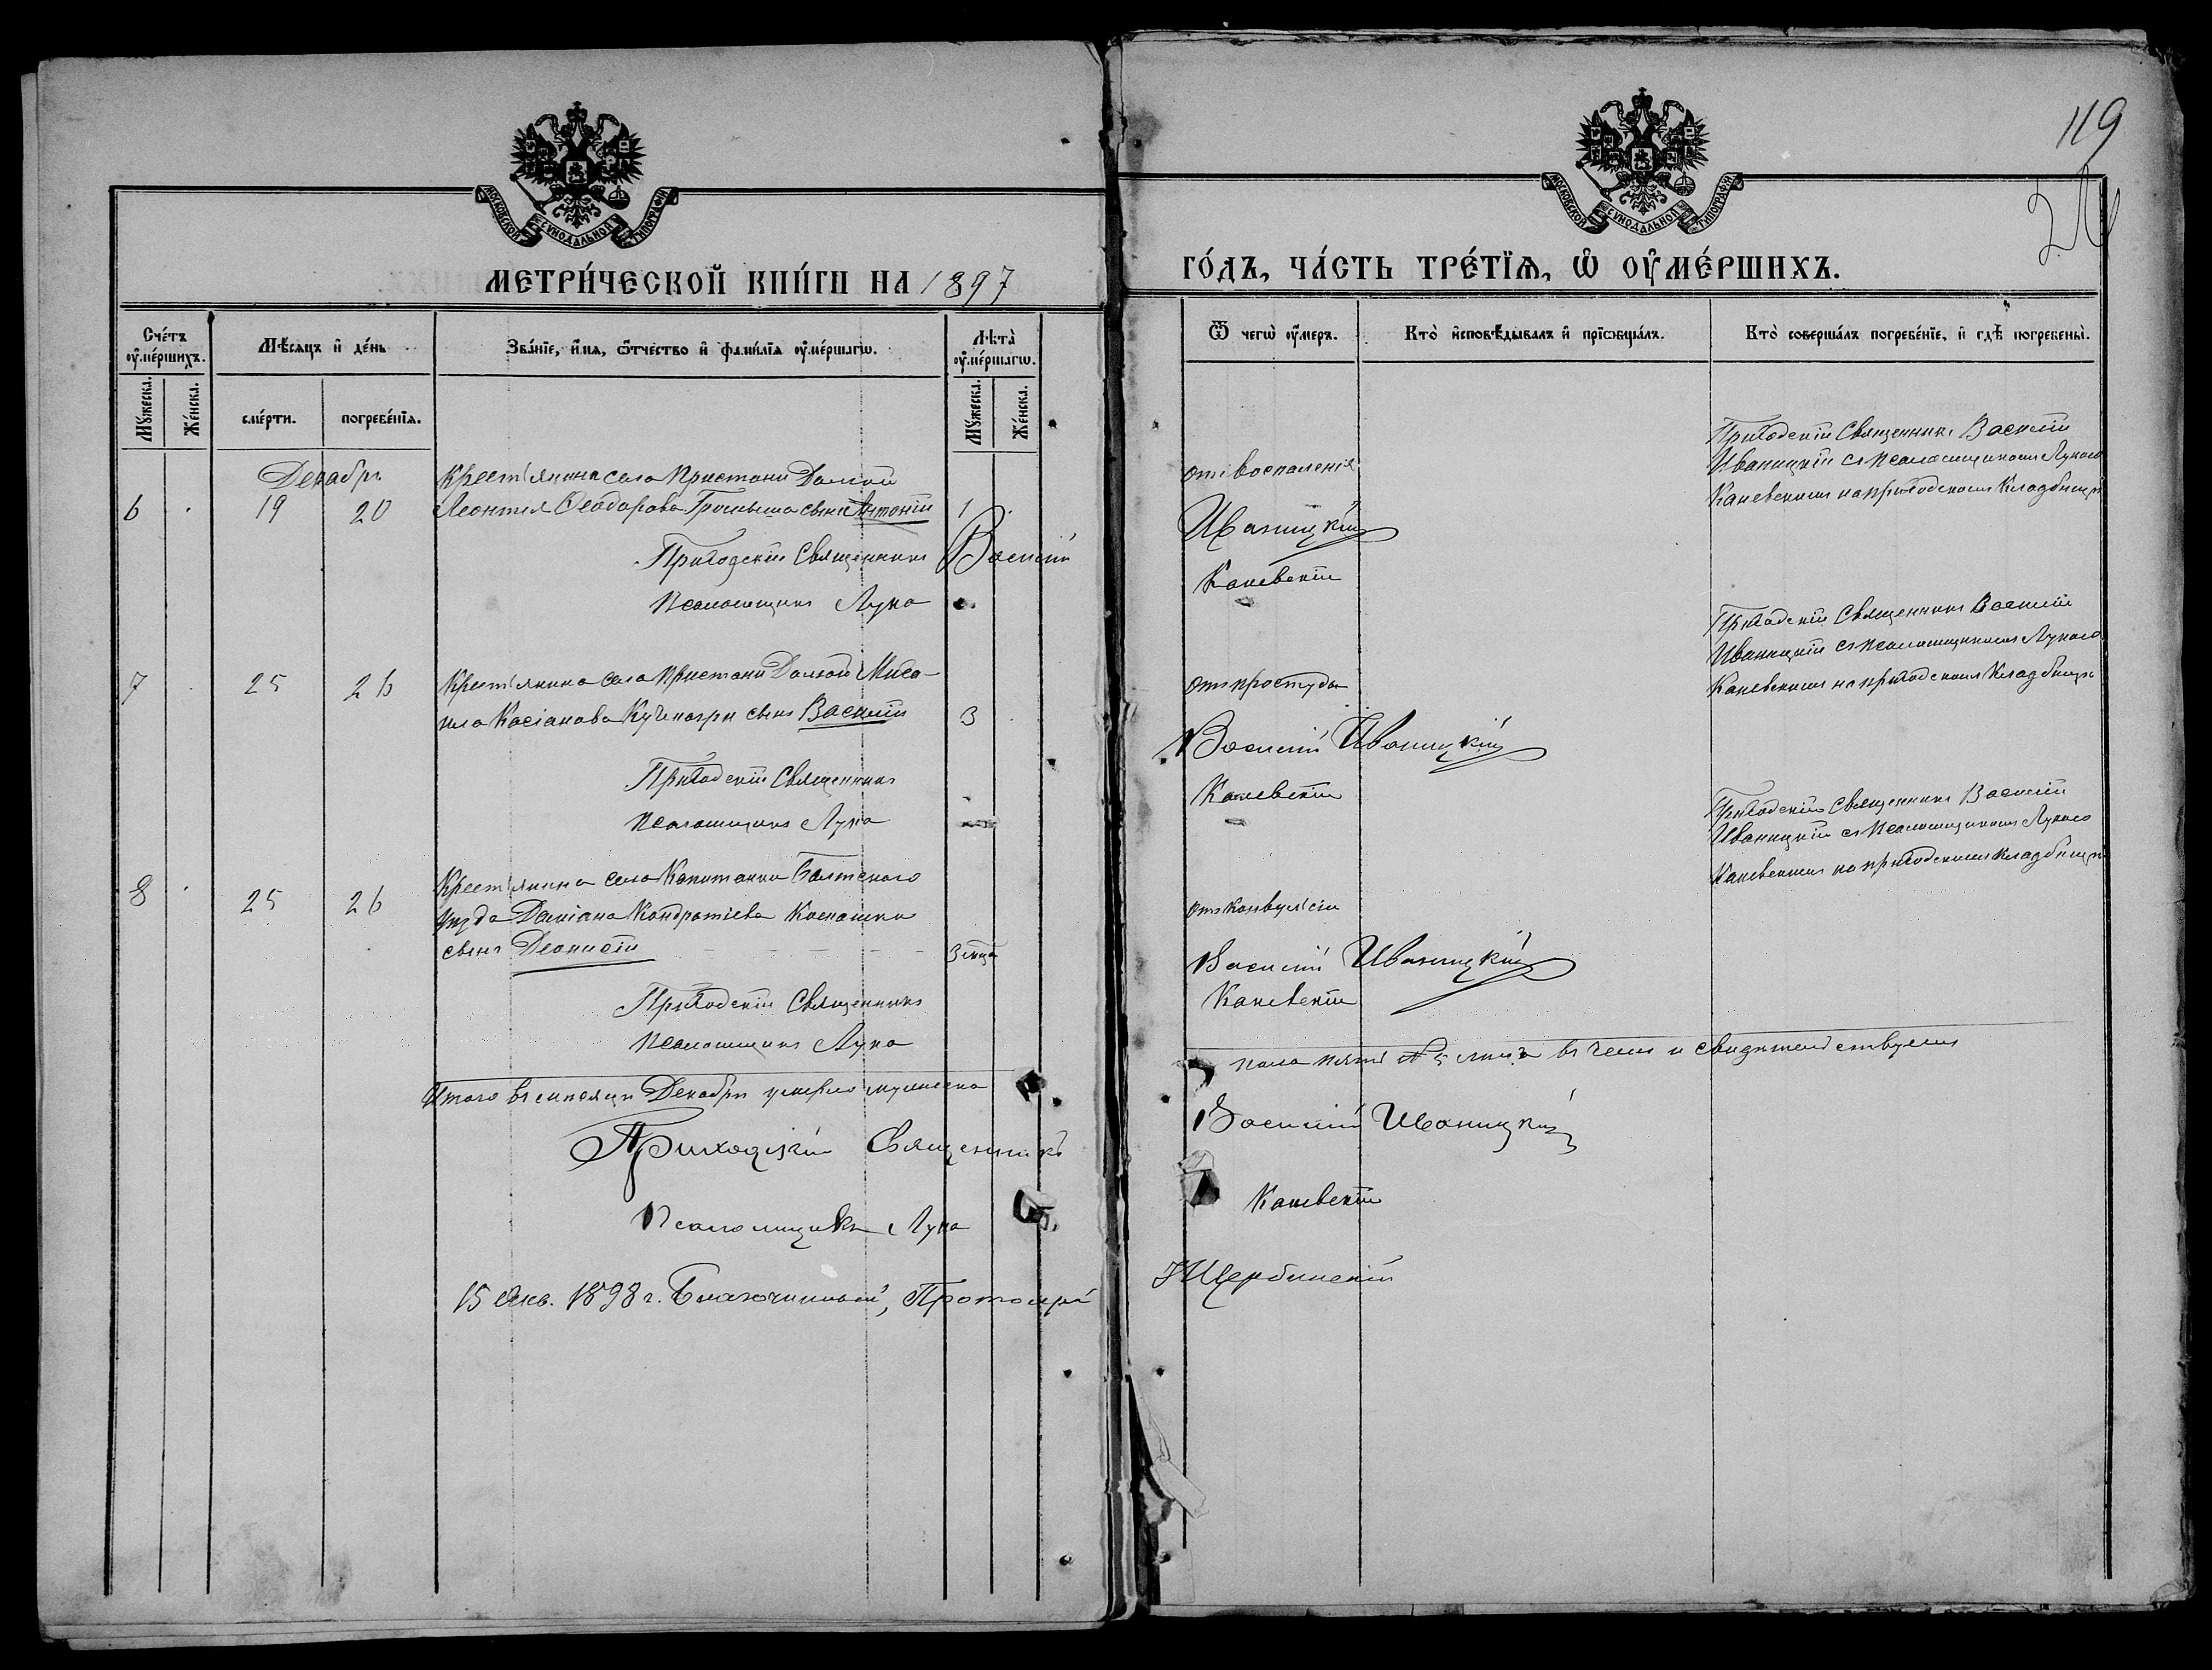 119
МОСКОВСКОЙ СѴНОДАЛЬНОЙ ТИПОГРАФІИ
МЕТРИ́ЧЕСКОЙ КНИ́ГИ НА 1897
Сче́тъ ᲂу҆ме́ршихъ.
Мꙋ́жеска. Же́нска.
Мѣ́сѧцъ и҆ де́нь
сме́рти. погребе́нїѧ.
Зва́нїе, и҆́мѧ, ѻ҆́тчество и҆ фами́лїѧ ᲂу҆ме́ршагѡ.
Лѣ́та ᲂу҆ме́ршагѡ.
Мꙋ́жеска. Же́нска.
Декабрь
6 19 20
Крестьянина села Пристани Долгой
Леонтія Ѳеодорова сынъ Антоній 1
Приходскій Священникъ Василій
Псаломщикъ Лука
7 25 26
Крестьянина села Пристани Долгой Миха-
ила Касіанова сынъ Василій 3
Приходскій Священникъ
Псаломщикъ Лука
8 25 26
Крестьянина села Капитанки Балтскаго
уѣзда Даміана Кондратіева
сынъ Діонисій 3 мца
Приходскій Священникъ
Псаломщикъ Лука
Итого въ мѣсяцѣ Декабрѣ умерло мужеска
Приходскій Священникъ
Псаломщикъ Лука
15 Янв. 1898 г. Благочинный, Протоіерей
МОСКОВСКОЙ СѴНОДАЛЬНОЙ ТИПОГРАФІИ
ГО́ДЪ, ЧА́СТЬ ТРЕ́ТЇѦ, Ѡ҆ ОУ҆МЕ́РШИХЪ.
Ѿ чегѡ̀ ᲂу҆́меръ.
Кто̀ и҆сповѣ́дывалъ и҆ прїѡбща́лъ.
Кто̀ соверша́лъ погребе́нїе, и҆ гдѣ̀ погребены̀.
отъ воспаленія
Приходскій Священникъ Василій
Иваницкій съ псаломщикомъ Лукою
Каневскимъ на приходскомъ кладбищѣ
Иваницкій
Каневскій
отъ простуды
Приходскій Священникъ Василій
Иваницкій съ псаломщикомъ Лукою
Каневскимъ на приходскомъ кладбищѣ
Василій Иваницкій
Каневскій
отъ конвульсіи
Приходскій Священникъ Василій
Иваницкій съ псаломщикомъ Лукою
Каневскимъ на приходскомъ кладбищѣ
Василій Иваницкій
Каневскій
пола пять № 5 лицъ въ чемъ и свидѣтельствуемъ
Василій Иваницкій
Каневскій
Щербинскій